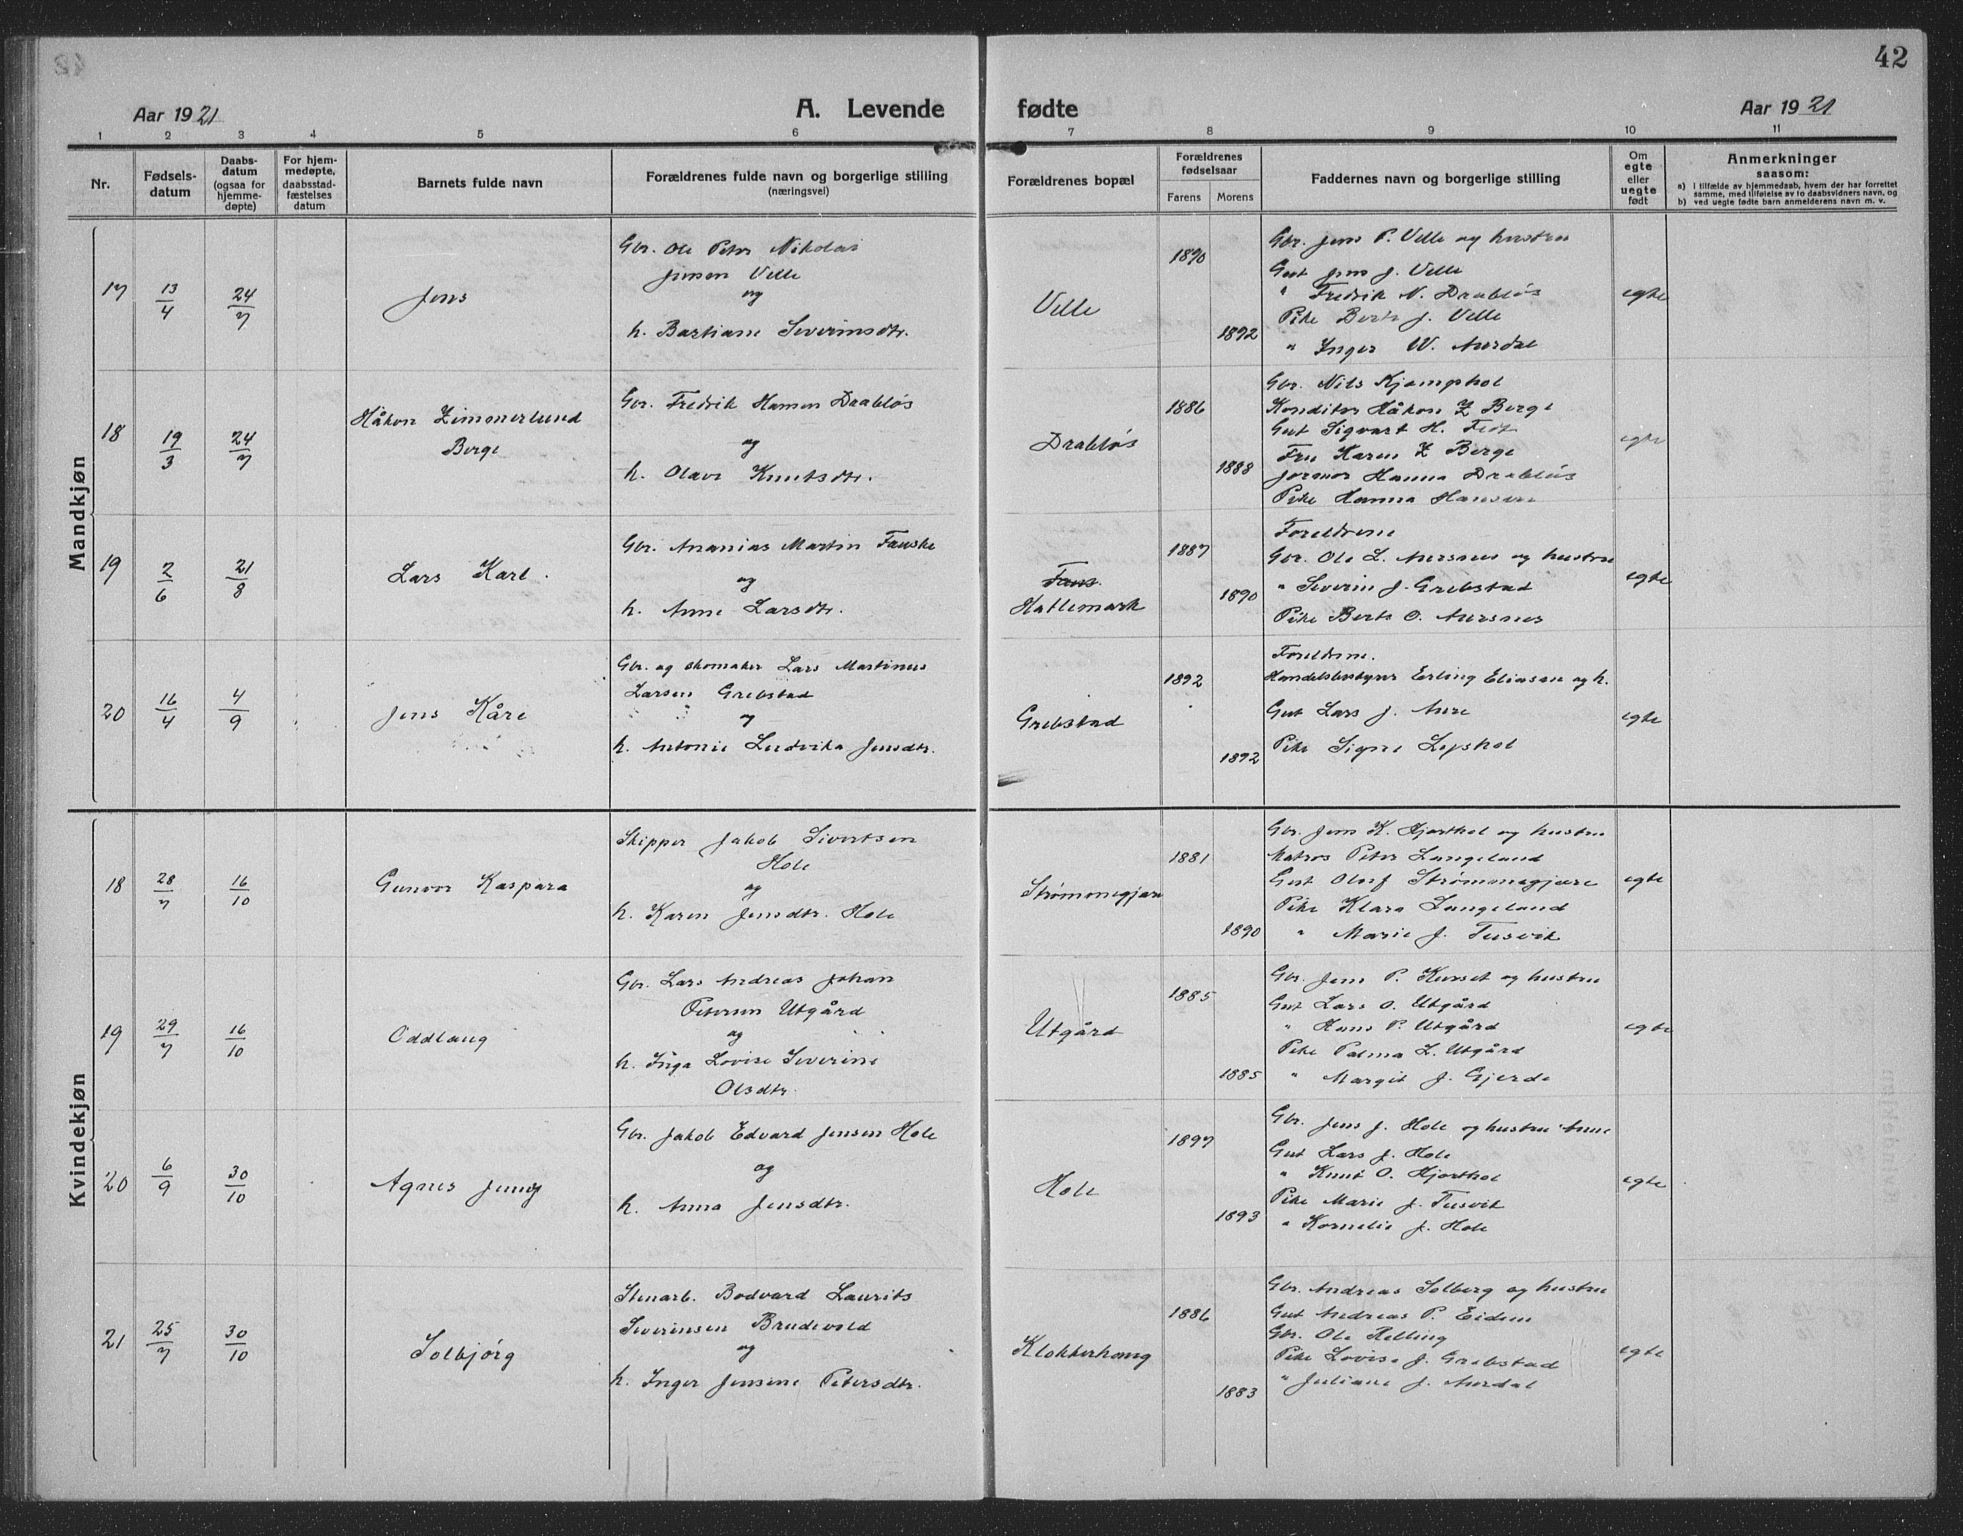 42
Aar 1921
A. Levende fødte
Aar 1921
1 2 3 4 5 6 7 8 9 10 11
Nr.
Fødsels-
datum
Daabs-
datum
(ogsaa for
hjemme-
døpte)
For hjem-
medøpte,
daabsstad-
fæstelses
datum
Barnets fulde navn
Forældrenes fulde navn og borgerlige stilling
(næringsvei)
Forældrenes bopæl
Forældrenes
fødselsaar
Farens Morens
Faddernes navn og borgerlige stilling
Om
egte
eller
uegte
født
Anmerkninger
saasom:
a) i tilfælde av hjemmedaab, hvem der har forrettet
samme, med tilføielse av to daabsvidners navn, og
b) ved uegte fødte barn anmelderens navn m. v.
Mandkjøn
17 13/4 24/7 Jens
Gbr. Ole Peter Nikolai
Jensen Velle
og
h. Bastiane Severinsdtr.
Velle
1890
1892
Gbr. Jens P. Velle og hustru
Gut Jens J. Velle
" Fredrik N. Drabløs
Pike Berte J. Velle
" Inger W. Aurdal
egte
18 19/3 24/7 Håkon Zimmerlund
Berge
Gbr. Fredrik Hansen Drabløs
og
h. Olave Knutsdtr.
Drabløs
1886
1888
Gbr. Nils Kjæmphol
Konditor Håkon Z Berge
Gut Sigvart H. Fedt
Fru Karen Z Berge
Jormor Hanna Drabløs
Pike Hanna Hansen
egte
19 2/6 21/8 Lars Karl.
Gbr. Ananias Martin Fauske
og
h. Anne Larsdtr.
Faus.
Hatlemark
1887
1890
Foreldrene
Gbr. Ole L. Aursnes og hustru
" Severin J. Grebstad
Pike Berte O. Aursnes
egte
20 16/4 4/9 Jens Kåre
Gbr. og skomaker Lars Martinus
Larsen Grebstad
og
h. Antonie Ludvika Jensdtr.
Grebstad
1892
1892
Foreldrene.
Handelsbestyrer Erling Eliassen og h.
Gut Lars J. Aure
Pike Signe Løpshol
egte
Kvindekjøn
18 28/7 16/10 Gunvor Kaspara
Skipper Jakob Sivertsen
Hole
og
h. Karen Jensdtr. Hole
Strømmegjære
1881
1890
Gbr. Jens K. Hjorthol og hustru
Matros Peter Langeland
Gut Olaf Strømmegjære
Pike Klara Langeland
" Marie J. Tusvik
egte
19 29/7 16/10 Oddlaug
Gbr. Lars Andreas Johan
Petersen Utgård
og
h. Inga Lovise Severine
Olsdtr.
Utgård
1885
1885
Gbr. Jens P. Kurset og hustru
Gut Lars O. Utgård
" Hans P. Utgård
Pike Palma L. Utgård
" Margit J. Gjerde
egte
20 6/9 30/10 Agnes Jenny
Gbr. Jakob Edvard Jensen Hole
og
h. Anna Jensdtr.
Hole
1897
1893
Gbr. Jens J. Hole og hustru Anne
Gut Lars J. Hole
" Knut O. Hjorthol
Pike Marie J. Tusvik
" Kornelie J. Hole
egte
21 25/7 30/10 Solbjørg
Stenarb. Bodvard Laurits
Severinsen Brudevold
og
h. Inger Jensine Petersdtr.
Klokkerhaug
1886
1883
Gbr. Andreas Solberg og hustru
Gut Andreas P. Eidem
Gbr. Ole Relling
Pike Lovise J. Grebstad
" Juliane J. Aurdal
egte